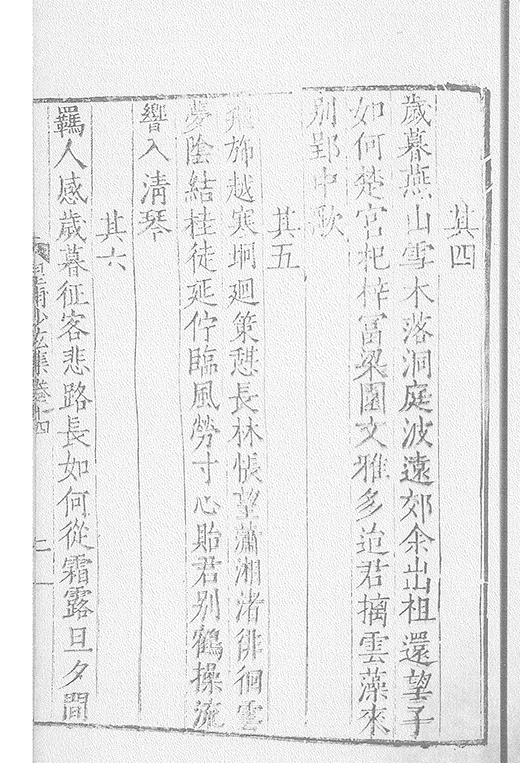 其四
歲暮燕山雪木落洞庭波遠郊余出祖還望子
如何楚宮杞梓富梁園文雅多迨君摛雲藻來
別郢中歌
其五
旆越寒坰迴策憩長林悵望瀟湘渚徘徊雲
夢陰結桂徒延佇臨風勞寸心貽君別鶴操流
響入清琴
其六
羈人感歲暮征客悲路長如何從霜露旦夕間
皇甫少玄集卷十四
二